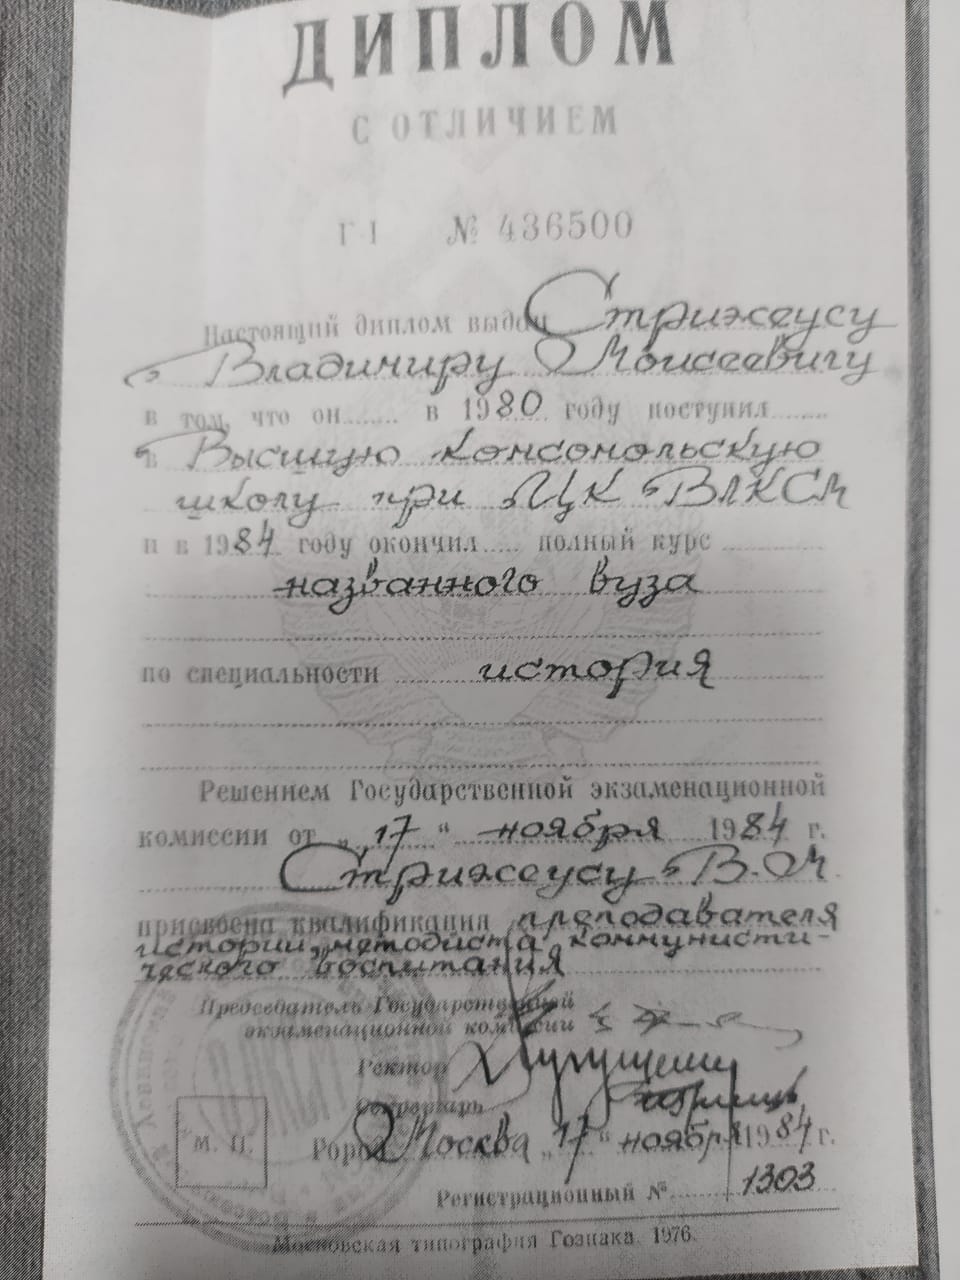 ДИПЛОМ
С ОТЛИЧИЕМ
Г-I № 436500
Настоящий диплом выдан Стрижеусу
Владимиру Моисеевичу
в том, что он в 1980 году поступил
в Высшую комсомольскую
школу при ЦК ВЛКСМ
и в 1984 году окончил полный курс
названного вуза
по специальности история
Решением Государственной экзаменационной
комиссии от „17“ ноября 1984 г.
Стрижеусу В.М.
присвоена квалификация преподавателя
истории, методиста коммунисти-
ческого воспитания
Председатель Государственной
экзаменационной комиссии
Ректор
Секретарь
М. П. Город Москва „17“ ноября 1984 г.
Регистрационный № 1303
Московская типография Гознака. 1976.